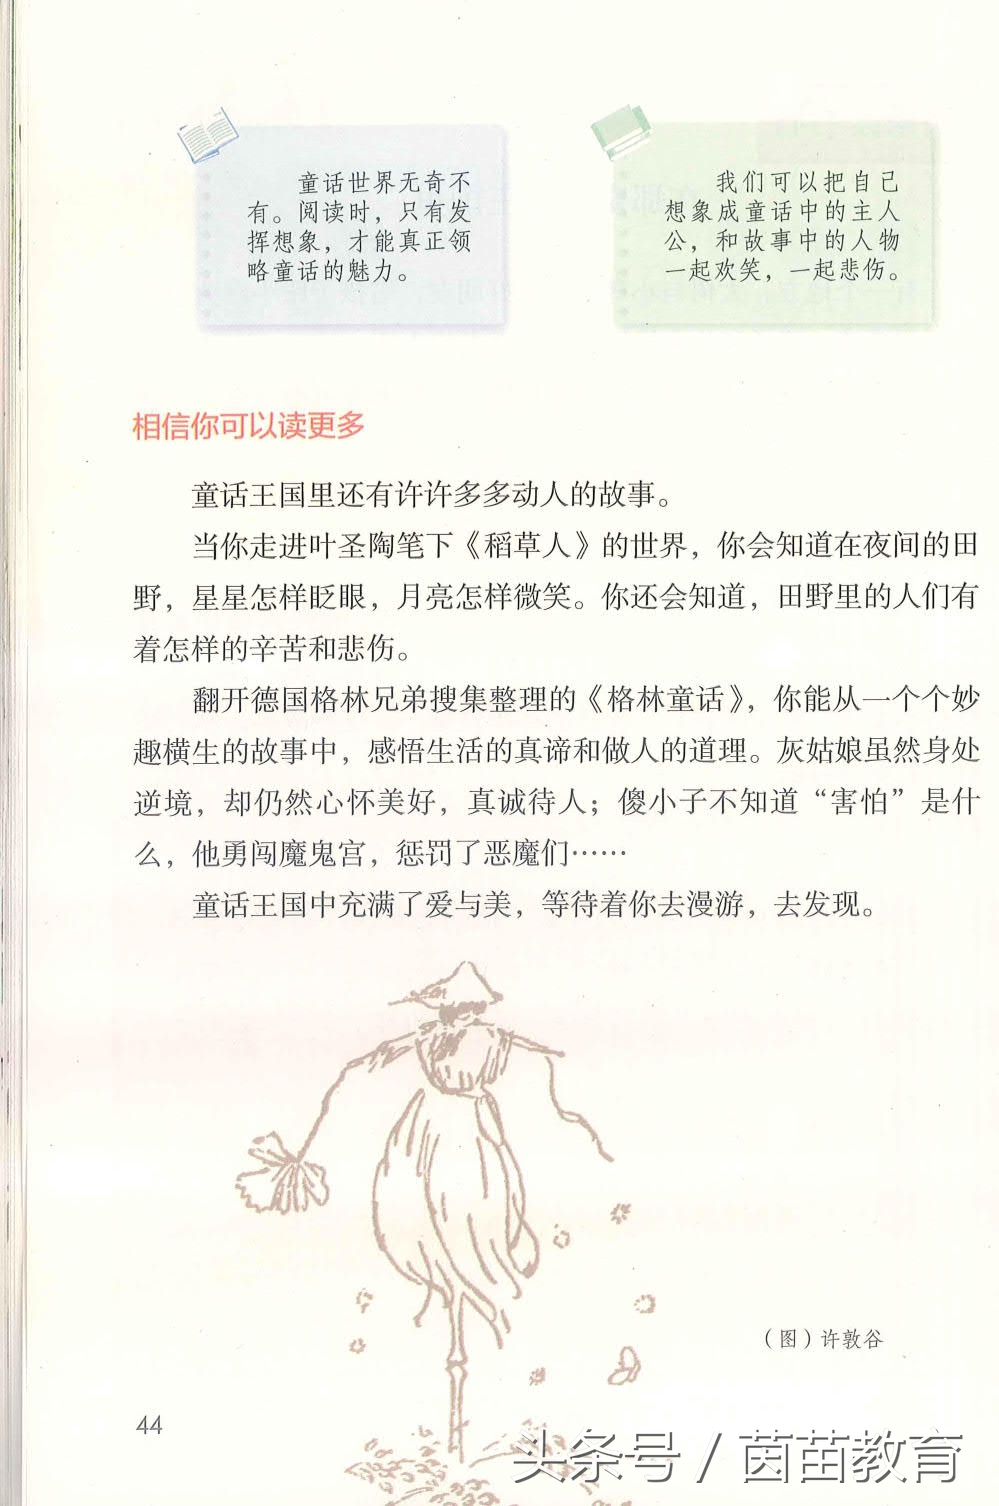 童话世界无奇不
有。阅读时，只有发
挥想象，才能真正领
略童话的魅力。
我们可以把自己
想象成童话中的主人
公，和故事中的人物
一起欢笑，一起悲伤。
相信你可以读更多
童话王国里还有许许多多动人的故事。
当你走进叶圣陶笔下《稻草人》的世界，你会知道在夜间的田
野，星星怎样眨眼，月亮怎样微笑。你还会知道，田野里的人们有
着怎样的辛苦和悲伤。
翻开德国格林兄弟搜集整理的《格林童话》，你能从一个个妙
趣横生的故事中，感悟生活的真谛和做人的道理。灰姑娘虽然身处
逆境，却仍然心怀美好，真诚待人；傻小子不知道“害怕”是什
么，他勇闯魔鬼宫，惩罚了恶魔们……
童话王国中充满了爱与美，等待着你去漫游，去发现。
（图）许敦谷
44
头条号 / 茵苗教育